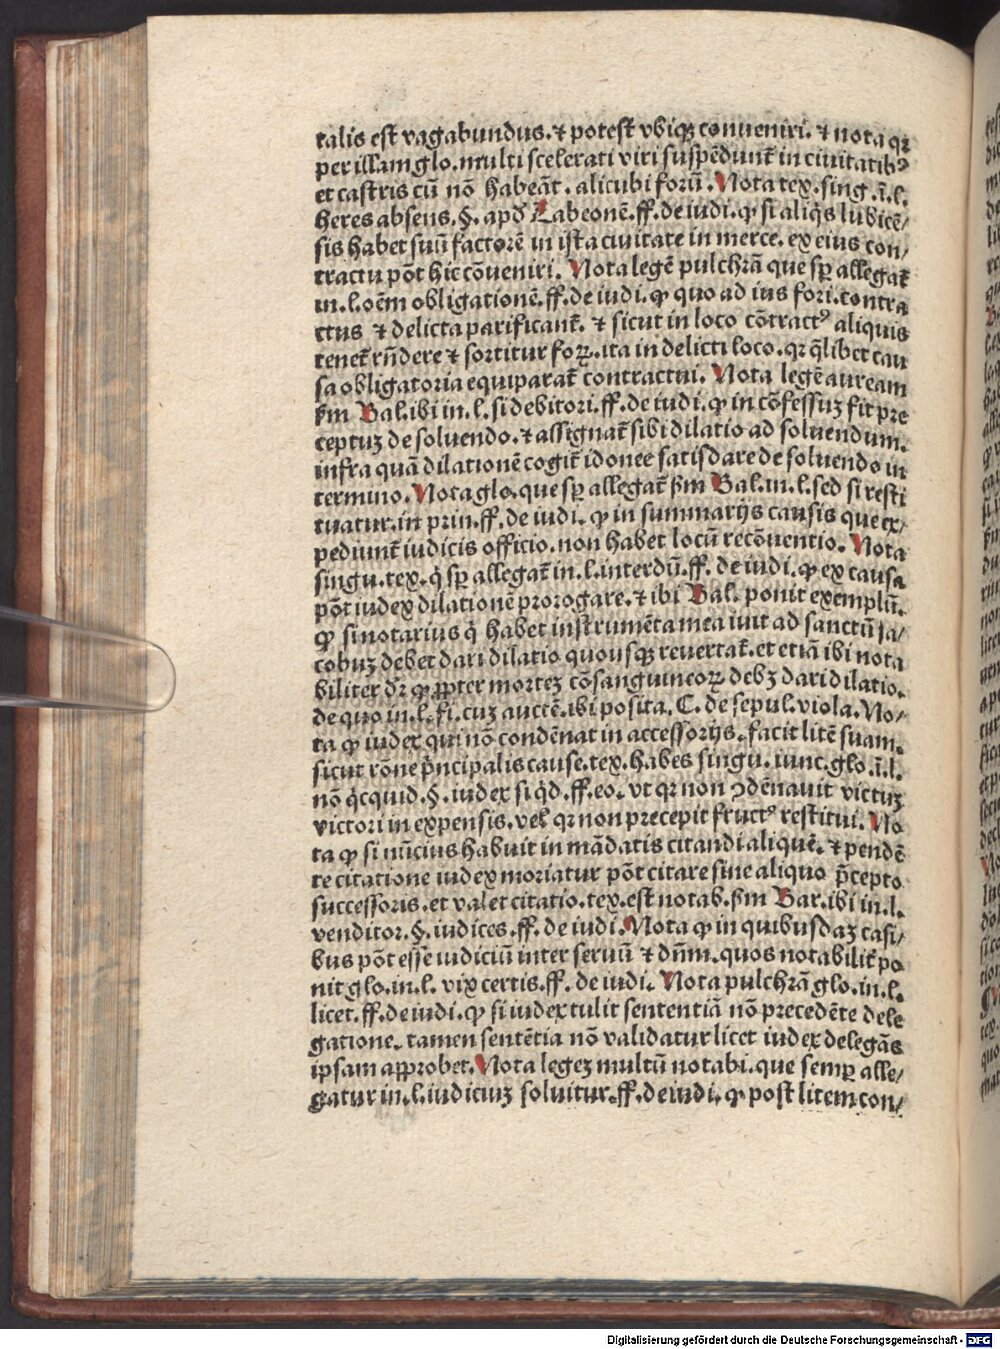 talis est vagabundus. ⁊ potest vbiqꝫ conueniri. ⁊ nota qꝛ
per illam glo. multi scelerati viri suspēdunt̄ in ciuitatibꝰ
et castris cū nō habeāt. alicubi forū. Nota tex. sing. ī. l.
heres absens. §. apd̓ Labeonē. ff. de iudi. ꝙ si aliq̇s lubicē/
sis habet suū factorē in ista ciuitate in merce. ex eius con/
tractu pōt hic cōueniri. Nota legē pulchrā que sꝑ allegat̄
in. l. oēm obligationē. ff. de iudi. ꝙ quo ad ius fori. contra
ctus ⁊ delicta parificant̄. ⁊ sicut in loco cōtractꝰ aliquis
tenet̄ rn̄dere ⁊ sortitur foꝝ. ita in delicti loco. qꝛ q̄libet cau
sa obligatoria equiparat̄ contractui. Nota legē auream
ẜm Bal. ibi in. l. si debitori. ff. de iudi. ꝙ in cōfessuꝫ fit pre
ceptuꝫ de soluendo. ⁊ assignat̄ sibi dilatio ad soluendum.
infra quā dilationē cogit̄ idonee satisdare de soluendo in
termino. Nota glo. que sꝑ allegat̄ ẜm Bal. in. l. sed si resti
tuatur. in prin. ff. de iudi. ꝙ in summarijs causis que ex/
pediunt̄ iudicis officio. non habet locū recōuentio. Nota
singu. tex. q̇ sꝑ allegat̄ in. l. interdū. ff. de iudi. ꝙ ex causa
pōt iudex dilationē prorogare. ⁊ ibi Bal. ponit exemplū.
ꝙ si notarius q̇ habet instrumēta mea iuit ad sanctū Ja/
cobuꝫ debet dari dilatio quousqꝫ reuertat̄. et etiā ibi nota
biliter dr̄ ꝙ ꝓpter morteꝫ cōsanguineoꝝ debꝫ dari dilatio.
de quo in. l. fi. cuꝫ auctē. ibi posita. C. de sepul. viola. No/
ta ꝙ iudex qui nō condēnat in accessorijs. facit litē suam.
sicut rōne p̄ncipalis cause. tex. habes singu. iunc. glo. ī. l.
nō q̇cquid. §. iudex si q̇d. ff. eo. vt qꝛ non ꝯdēnauit victuꝫ
victori in expensis. vel qꝛ non precepit fructꝰ restitui. No
ta ꝙ si nūcius habuit in mādatis citandi aliquē. ⁊ pendē
te citatione iudex moriatur pōt citare sine aliquo p̄cepto
successoris. et valet citatio. tex. est notab. ẜm Bar. ibi in. l.
venditor. §. iudices. ff. de iudi. Nota ꝙ in quibusdaꝫ casi/
bus pōt esse iudiciū inter seruū ⁊ dn̄m. quos notabilit̄ po
nit glo. in. l. vix certis. ff. de iudi. Nota pulchrā glo. in. l.
licet. ff. de iudi. ꝙ si iudex tulit sententiā nō precedēte dele
gatione. tamen sentētia nō validatur licet iudex delegās
ipsam approbet. Nota legeꝫ multū notabi. que semꝑ alle/
gatur in. l. iudiciuꝫ soluitur. ff. de iudi. ꝙ post litem con/
Digitalisierung gefördert durch die Deutsche Forschungsgemeinschaft - DFG